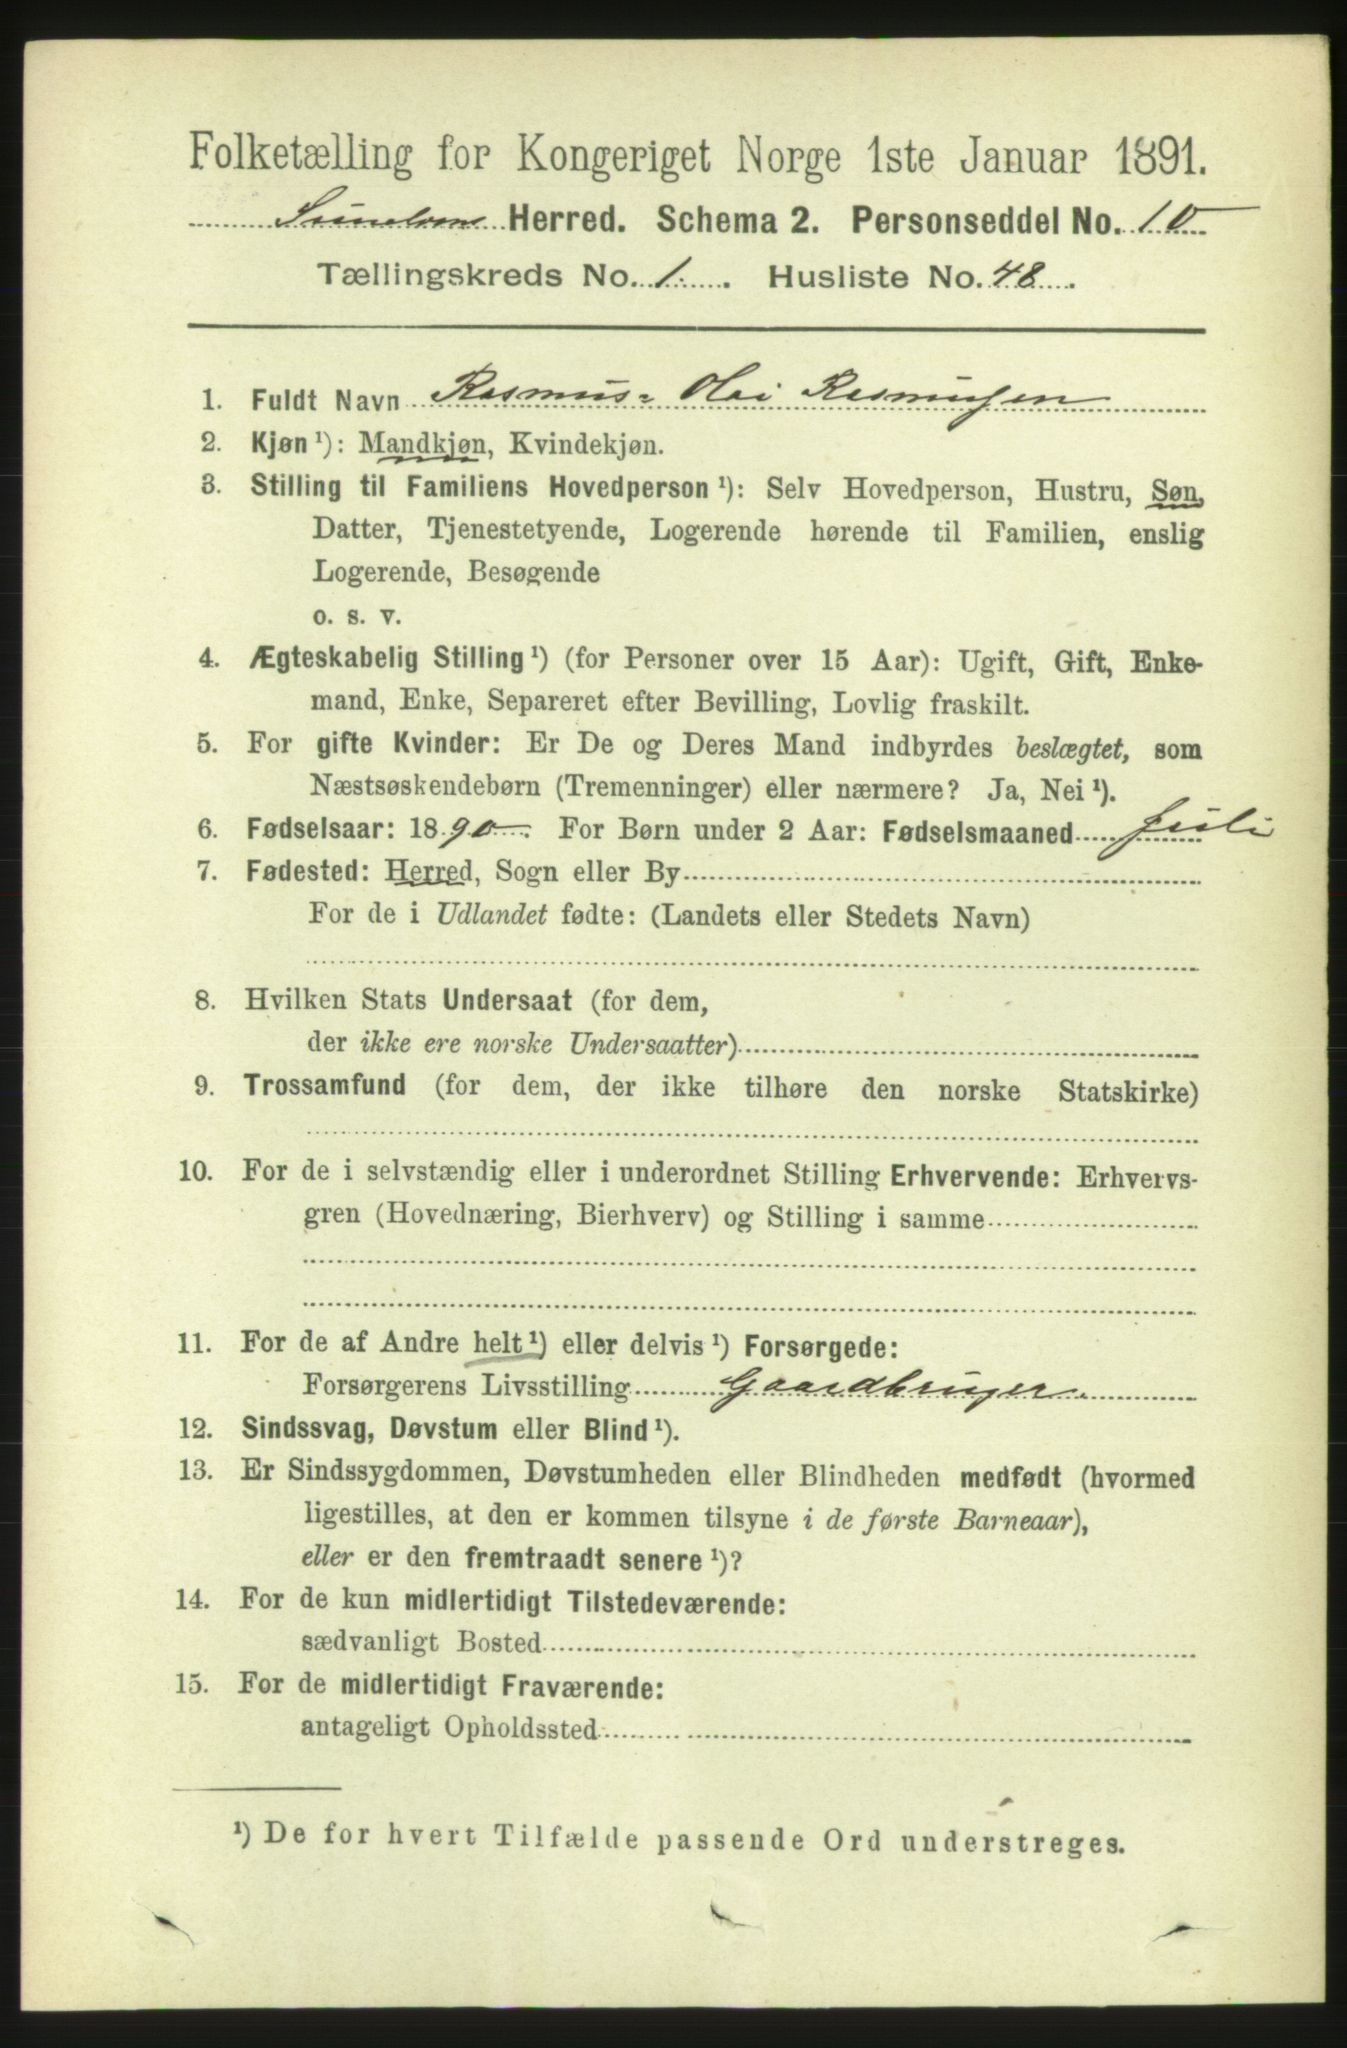 Folketælling for Kongeriget Norge 1ste Januar 1891.
Sunelvens Herred. Schema 2. Personseddel No. 10
Tællingskreds No. 1. Husliste No. 48.
1. Fuldt Navn Rasmus Rasmussen
2. Kjøn ¹): Mandkjøn, Kvindekjøn.
3. Stilling til Familiens Hovedperson ¹): Selv Hovedperson, Hustru, Søn,
Datter, Tjenestetyende, Logerende hørende til Familien, enslig
Logerende, Besøgende
o. s. v.
4. Ægteskabelig Stilling ¹) (for Personer over 15 Aar): Ugift, Gift, Enke-
mand, Enke, Separeret efter Bevilling, Lovlig fraskilt.
5. For gifte Kvinder: Er De og Deres Mand indbyrdes beslægtet, som
Næstsøskendebørn (Tremenninger) eller nærmere? Ja, Nei ¹).
6. Fødselsaar: 1890. For Børn under 2 Aar: Fødselsmaaned Juli
7. Fødested: Herred, Sogn eller By
For de i Udlandet fødte: (Landets eller Stedets Navn)
8. Hvilken Stats Undersaat (for dem,
der ikke ere norske Undersaatter)
9. Trossamfund (for dem, der ikke tilhøre den norske Statskirke)
10. For de i selvstændig eller i underordnet Stilling Erhvervende: Erhvervs-
gren (Hovednæring, Bierhverv) og Stilling i samme
11. For de af Andre helt ¹) eller delvis ¹) Forsørgede:
Forsørgerens Livsstilling Gaardbruger
12. Sindssvag, Døvstum eller Blind ¹).
13. Er Sindssygdommen, Døvstumheden eller Blindheden medfødt (hvormed
ligestilles, at den er kommen tilsyne i de første Barneaar),
eller er den fremtraadt senere ¹)?
14. For de kun midlertidigt Tilstedeværende:
sædvanligt Bosted
15. For de midlertidigt Fraværende:
antageligt Opholdssted
¹) De for hvert Tilfælde passende Ord understreges.